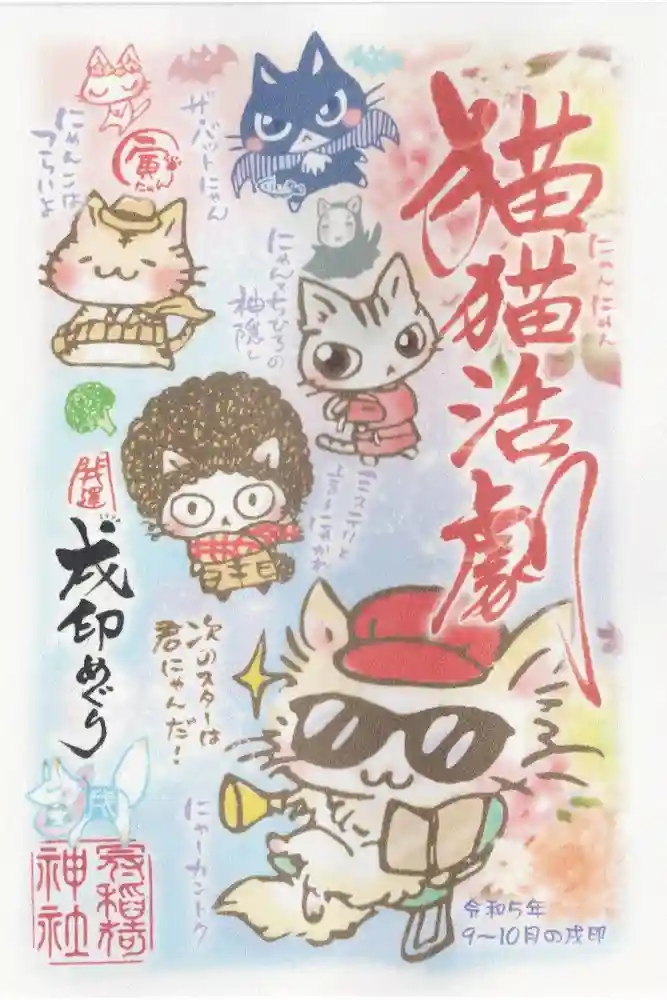 猫猫活劇
にゃんにゃん
ザ・バットにゃん
にゃんこは
つらいよ
寅
にゃん
にゃんとちひろの
神隠し
ミステリと
言うにゃかれ
開運
戌印めぐり
次のスターは
君にゃんだ!
戌
にゃーカントク
神社
令和5年
9〜10月の戌印